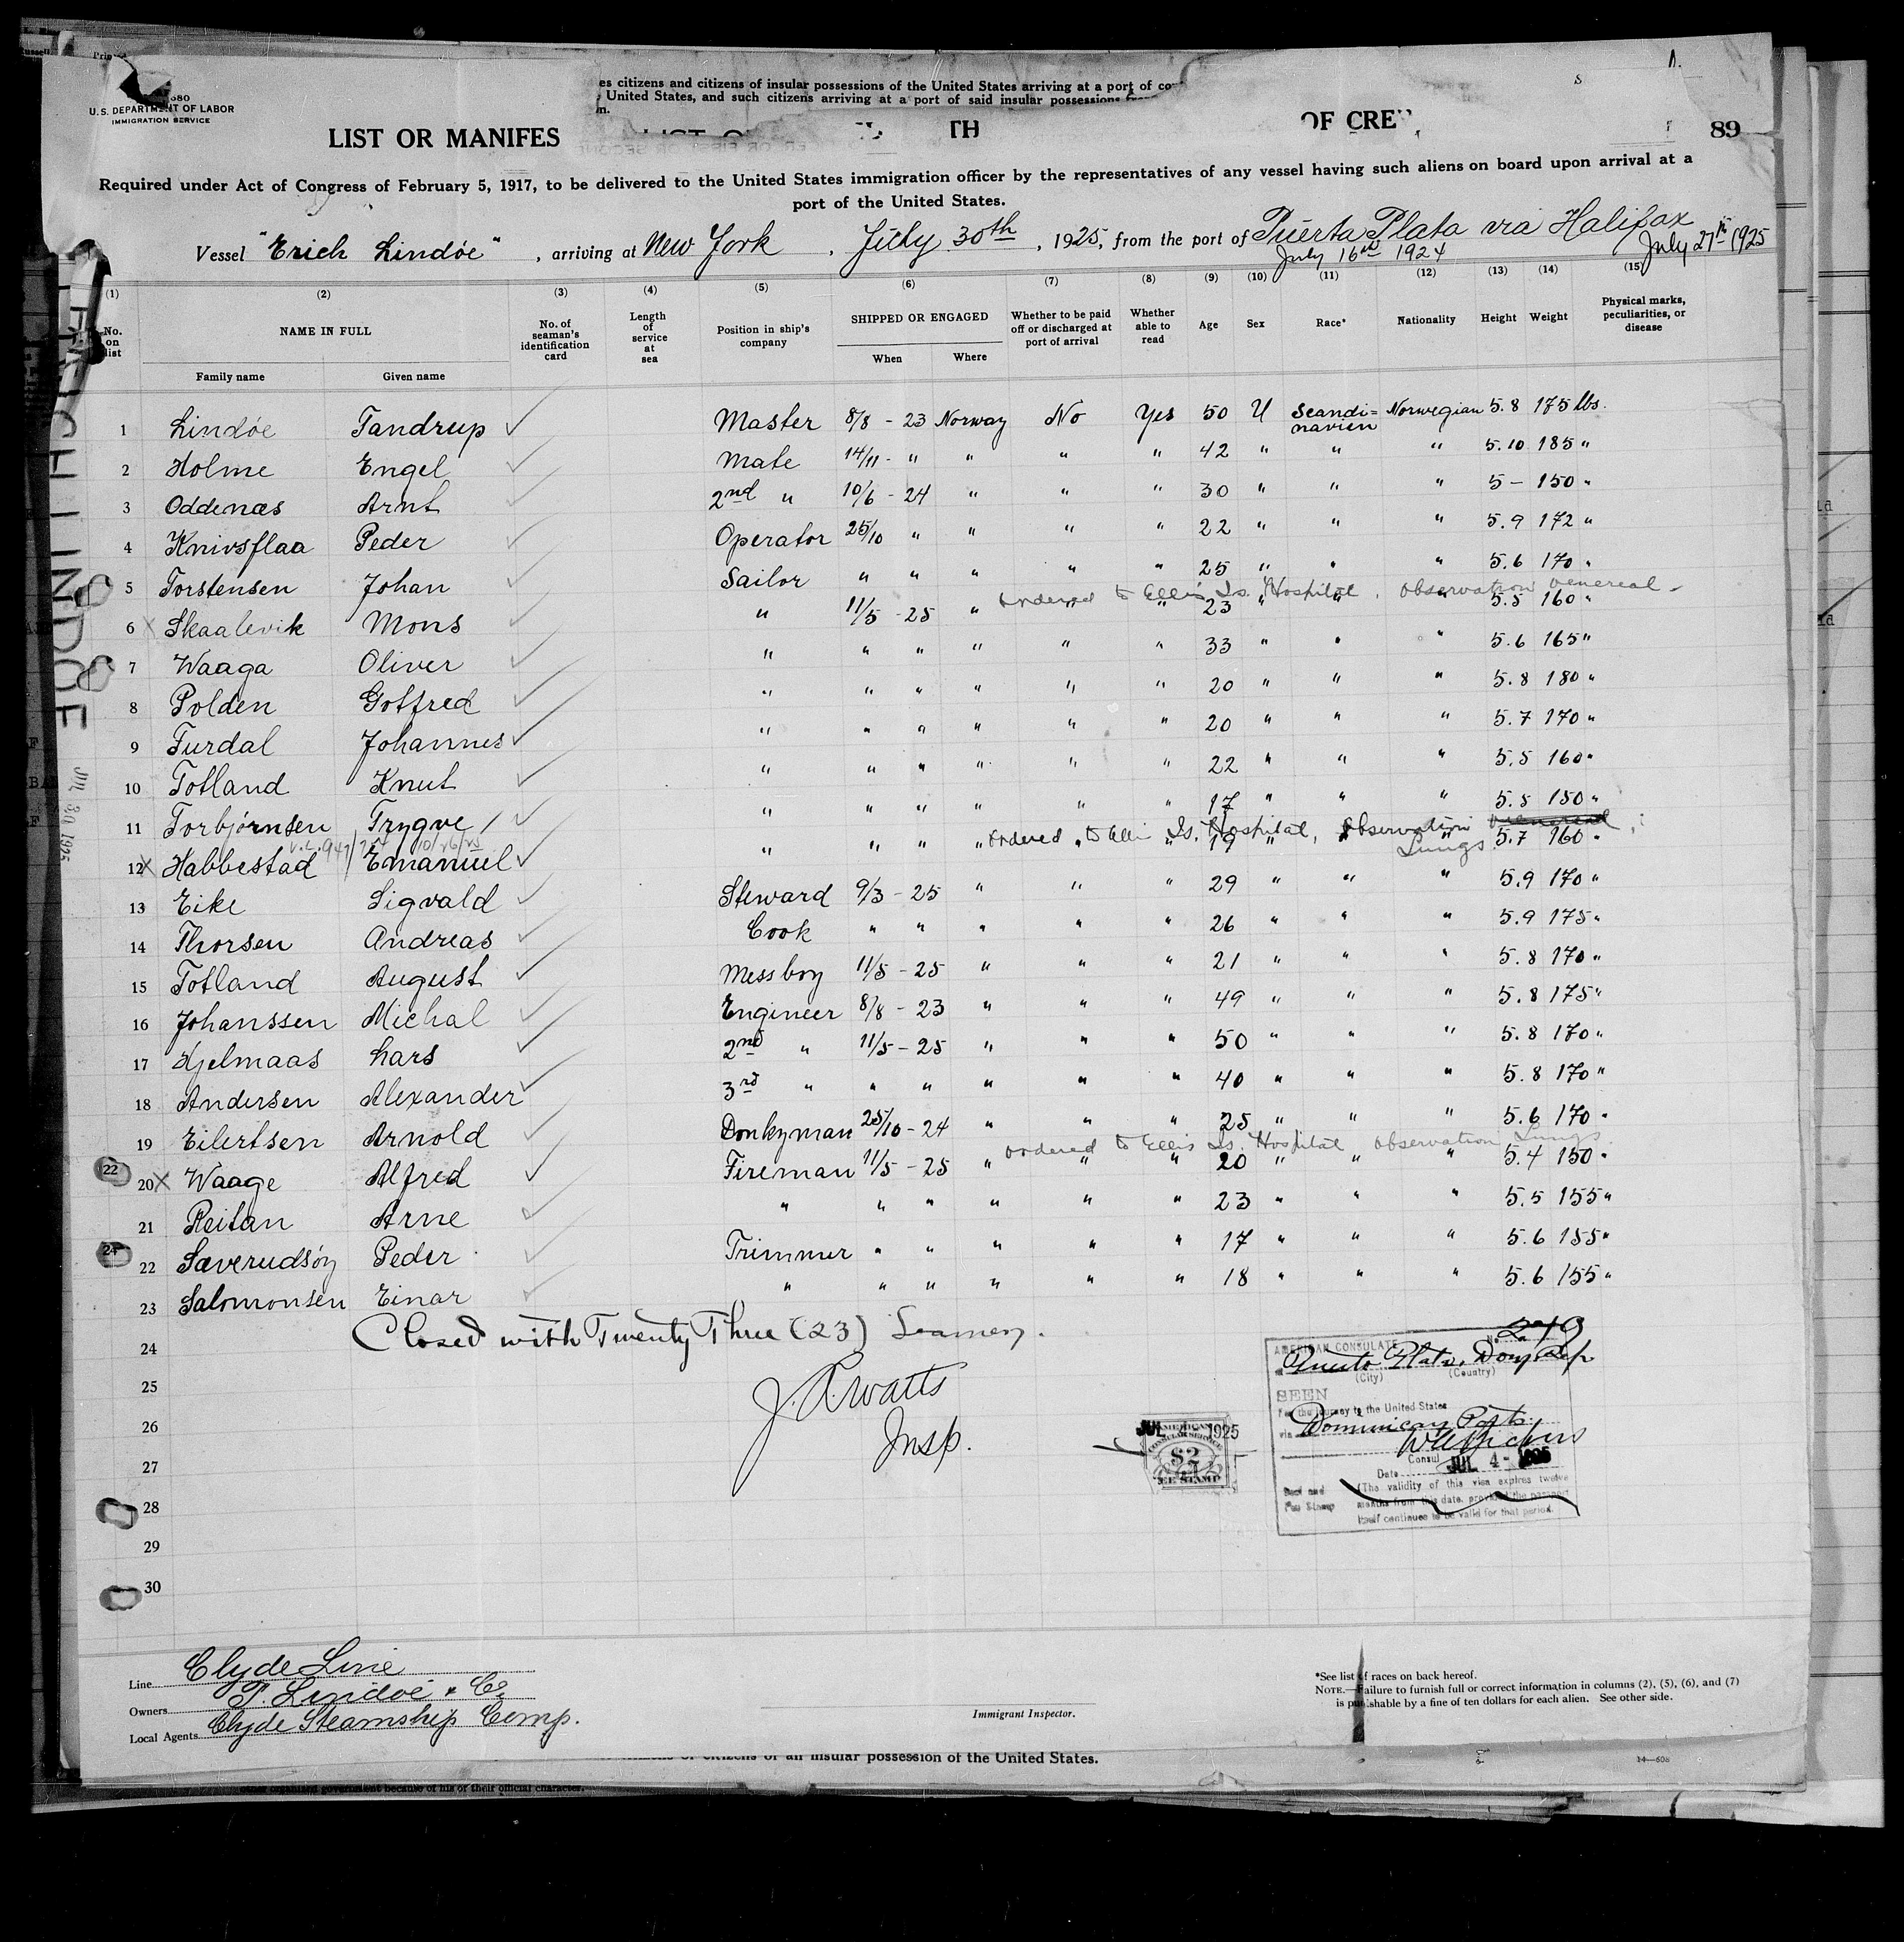 es citizens and citizens of insular possessions of the United States arriving at a port of
United States, and such citizens arriving at a port of said insular possessions
U.S. DEPARTMENT OF LABOR
IMMIGRATION SERVICE
LIST OR MANIFES TH OF CREW 89
Required under Act of Congress of February 5, 1917, to be delivered to the United States immigration officer by the representatives of any vessel having such aliens on board upon arrival at a
port of the United States.
Vessel "Erich Lindöe", arriving at New York, July 30th, 1925, from the port of Puerta Plata via Halifax
July 16th 1924 July 27th 1925
(1) (2) (3) (4) (5) (6) (7) (8) (9) (10) (11) (12) (13) (14) (15)
No. on list NAME IN FULL No. of seaman's identification card Length of service at sea Position in ship's company SHIPPED OR ENGAGED Whether to be paid off or discharged at port of arrival Whether able to read Age Sex Race* Nationality Height Weight Physical marks, peculiarities, or disease
Family name Given name When Where
1 Lindöe Tandrup Master 8/8 - 23 Norway No Yes 50 U Scandi=navien Norwegian 5.8 175 lbs.
2 Holme Engel Mate 14/11 - " " " " 42 " " " 5.10 185 "
3 Oddenæs Arnt 2nd " 10/6 - 24 " " " 30 " " " 5 - 150 "
4 Knivsflaa Peder Operator 25/10 " " " " 22 " " " 5.9 172 "
5 Torstensen Johan Sailor " " " " " 25 " " " 5.6 170 "
ordered to Ellis Is. Hospital. observation venereal
6 X Skaalevik Mons " 11/5 - 25 " " " 23 " " " 5.5 160 "
7 Waaga Oliver " " " " " " 33 " " " 5.6 165 "
8 Polden Gotfred " " " " " " 20 " " " 5.8 180 "
9 Furdal Johannes " " " " " " 20 " " " 5.7 170 "
10 Totland Knut " " " " " " 22 " " " 5.5 160 "
11 Torbjörnsen Trygve " " " " " " 17 " " " 5.5 150 "
ordered to Ellis Is. Hospital, observation venereal Lungs
12 X Habbestad Emanuel " " " " " " 19 " " " 5.7 160 "
13 Eike Sigvald Steward 9/3 - 25 " " " 29 " " " 5.9 170 "
14 Thorsen Andreas Cook " " " " " 26 " " " 5.9 175 "
15 Totland August Messboy 11/5 - 25 " " " 21 " " " 5.8 170 "
16 Johanssen Michal Engineer 8/8 - 23 " " " 49 " " " 5.8 175 "
17 Hjelmaas Lars 2nd " 11/5 - 25 " " " 50 " " " 5.8 170 "
18 Andersen Alexander 3rd " " " " " " 40 " " " 5.8 170 "
19 Eilertsen Arnold Donkyman 25/10 - 24 " " " 25 " " " 5.6 170 "
ordered to Ellis Is. Hospital observation Lungs
22 20 X Waage Alfred Fireman 11/5 - 25 " " " 20 " " " 5.4 150 "
21 Reitan Arne " " " " " " 23 " " " 5.5 155 "
24 22 Sæverudsöy Peder Trimmer " " " " " 17 " " " 5.6 155 "
23 Salomonsen Einar " " " " " " 18 " " " 5.6 155 "
24 Closed with Twenty Three (23) Seamen.
25 J. R. Watts
26 Insp.
27
28
29
30
ERICH LINDOE
JUL 30 1925
AMERICAN CONSULATE
Puerto Plata, Dom. Rep.
(City) (Country)
SEEN
For the journey to the United States
via Dominican Ports
Consul
Date JUL 4 - 1925
(The validity of this visa expires twelve
months from this date, provided the passport
itself continues to be valid for that period.
Fee Stamp
JUL 1925
AMERICAN
CONSULAR SERVICE
$2
FEE STAMP
Line Clyde Line
Owners T. Lindöe & Co
Local Agents Clyde Steamship Comp.
Immigrant Inspector.
*See list of races on back hereof.
NOTE.—Failure to furnish full or correct information in columns (2), (5), (6), and (7)
is punishable by a fine of ten dollars for each alien. See other side.
of citizens of an insular possession of the United States.
14—608
other organized government because of his or their official character.